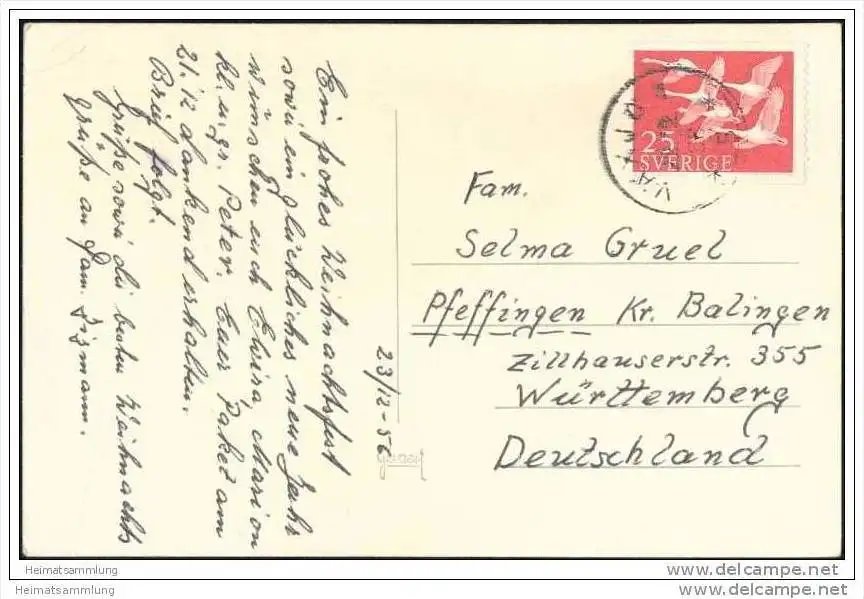 Ein frohes Weihnachtsfest
sowie ein glückliches neue Jahr
wünschen euch Elvira, Marion
kl. u. gr. Peter. Euer Paket am
21.12 dankend erhalten.
Brief folgt.
Grüße sowie die besten Weihnachts
grüße an Fam.
23/12-56
25
SVERIGE
VÄXJÖ
Fam.
Selma Gruel
Pfeffingen Kr. Balingen
Zillhauserstr. 355
Württemberg
Deutschland
Heimatsammlung
Heimatsammlung
www.delcampe.net